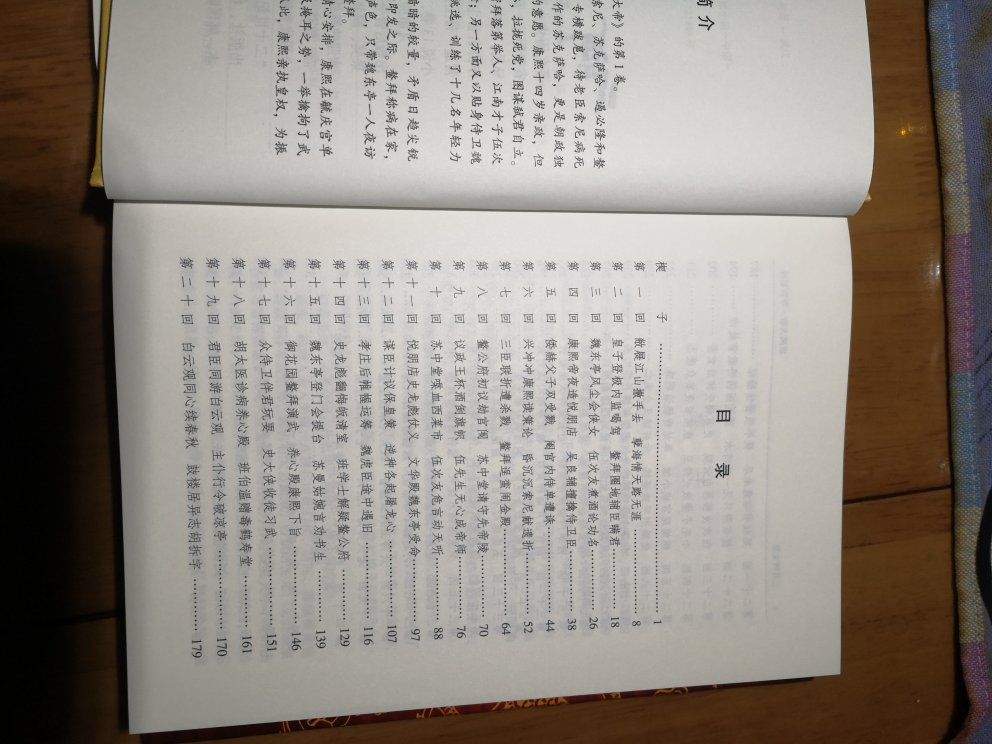 简介
大帝》的第1卷。
索尼、苏克萨哈、遏必隆和鳌
专横跋扈，待老臣索尼病死
作的苏克萨哈，更是朝政独
，拉拢死党，图谋弑君自立。
的意愿。康熙十四岁亲政，但
拜落第举人、江南才子伍次
；另一方面又以贴身侍卫魏
挑选、训练了十几名年轻力
暗暗的较量，矛盾日趋尖锐
即发之际。鳌拜称病在家，
声色，只带魏东亭一人夜访
鳌拜。
精心安排，康熙在毓庆宫单
掩耳之势，一举擒拘了武
从此，康熙亲执皇权，为振
目录
楔子 1
第一回 敝屣江山撒手去 孽海情天路无涯 8
第二回 皇子登极内监喝驾 鳌拜圈地辅臣瞒君 18
第三回 魏东亭风尘会侠女 伍次友煮酒论功名 26
第四回 康熙帝夜造悦朋店 吴良辅擅擒侍卫臣 38
第五回 倭赫父子双受戮 阉宦内侍单遭诛 44
第六回 兴冲冲康熙读策论 昏沉沉索尼献遗折 52
第七回 三臣联折遭杀戮 鳌拜逞蛮闹金殿 64
第八回 鳌公府初议劫官闱 苏中堂请守先帝陵 70
第九回 议政王杯酒倒旗帜 伍先生无心成帝师 76
第十回 苏中堂喋血西菜市 伍次友危言动天听 88
第十一回 悦朋店史龙彪仗义 文华殿魏东亭受命 97
第十二回 谋臣计议保皇策 逆种各起屠龙心 107
第十三回 孝庄后帷幄运筹 魏虎臣途中遇旧 116
第十四回 史龙彪翻悔皈清室 班学士解疑鳌公府 129
第十五回 魏东亭登门会提台 苏曼姑婉言劝书生 139
第十六回 御花园鳌拜演武 养心殿康熙下旨 146
第十七回 众侍卫伴君玩耍 史大侠收徒习武 151
第十八回 胡太医诊病养心殿 班伯温赠毒鹤寿堂 161
第十九回 君臣同游白云观 主仆行令破凉亭 170
第二十回 白云观同心续春秋 鼓楼居异志胡拆字 179